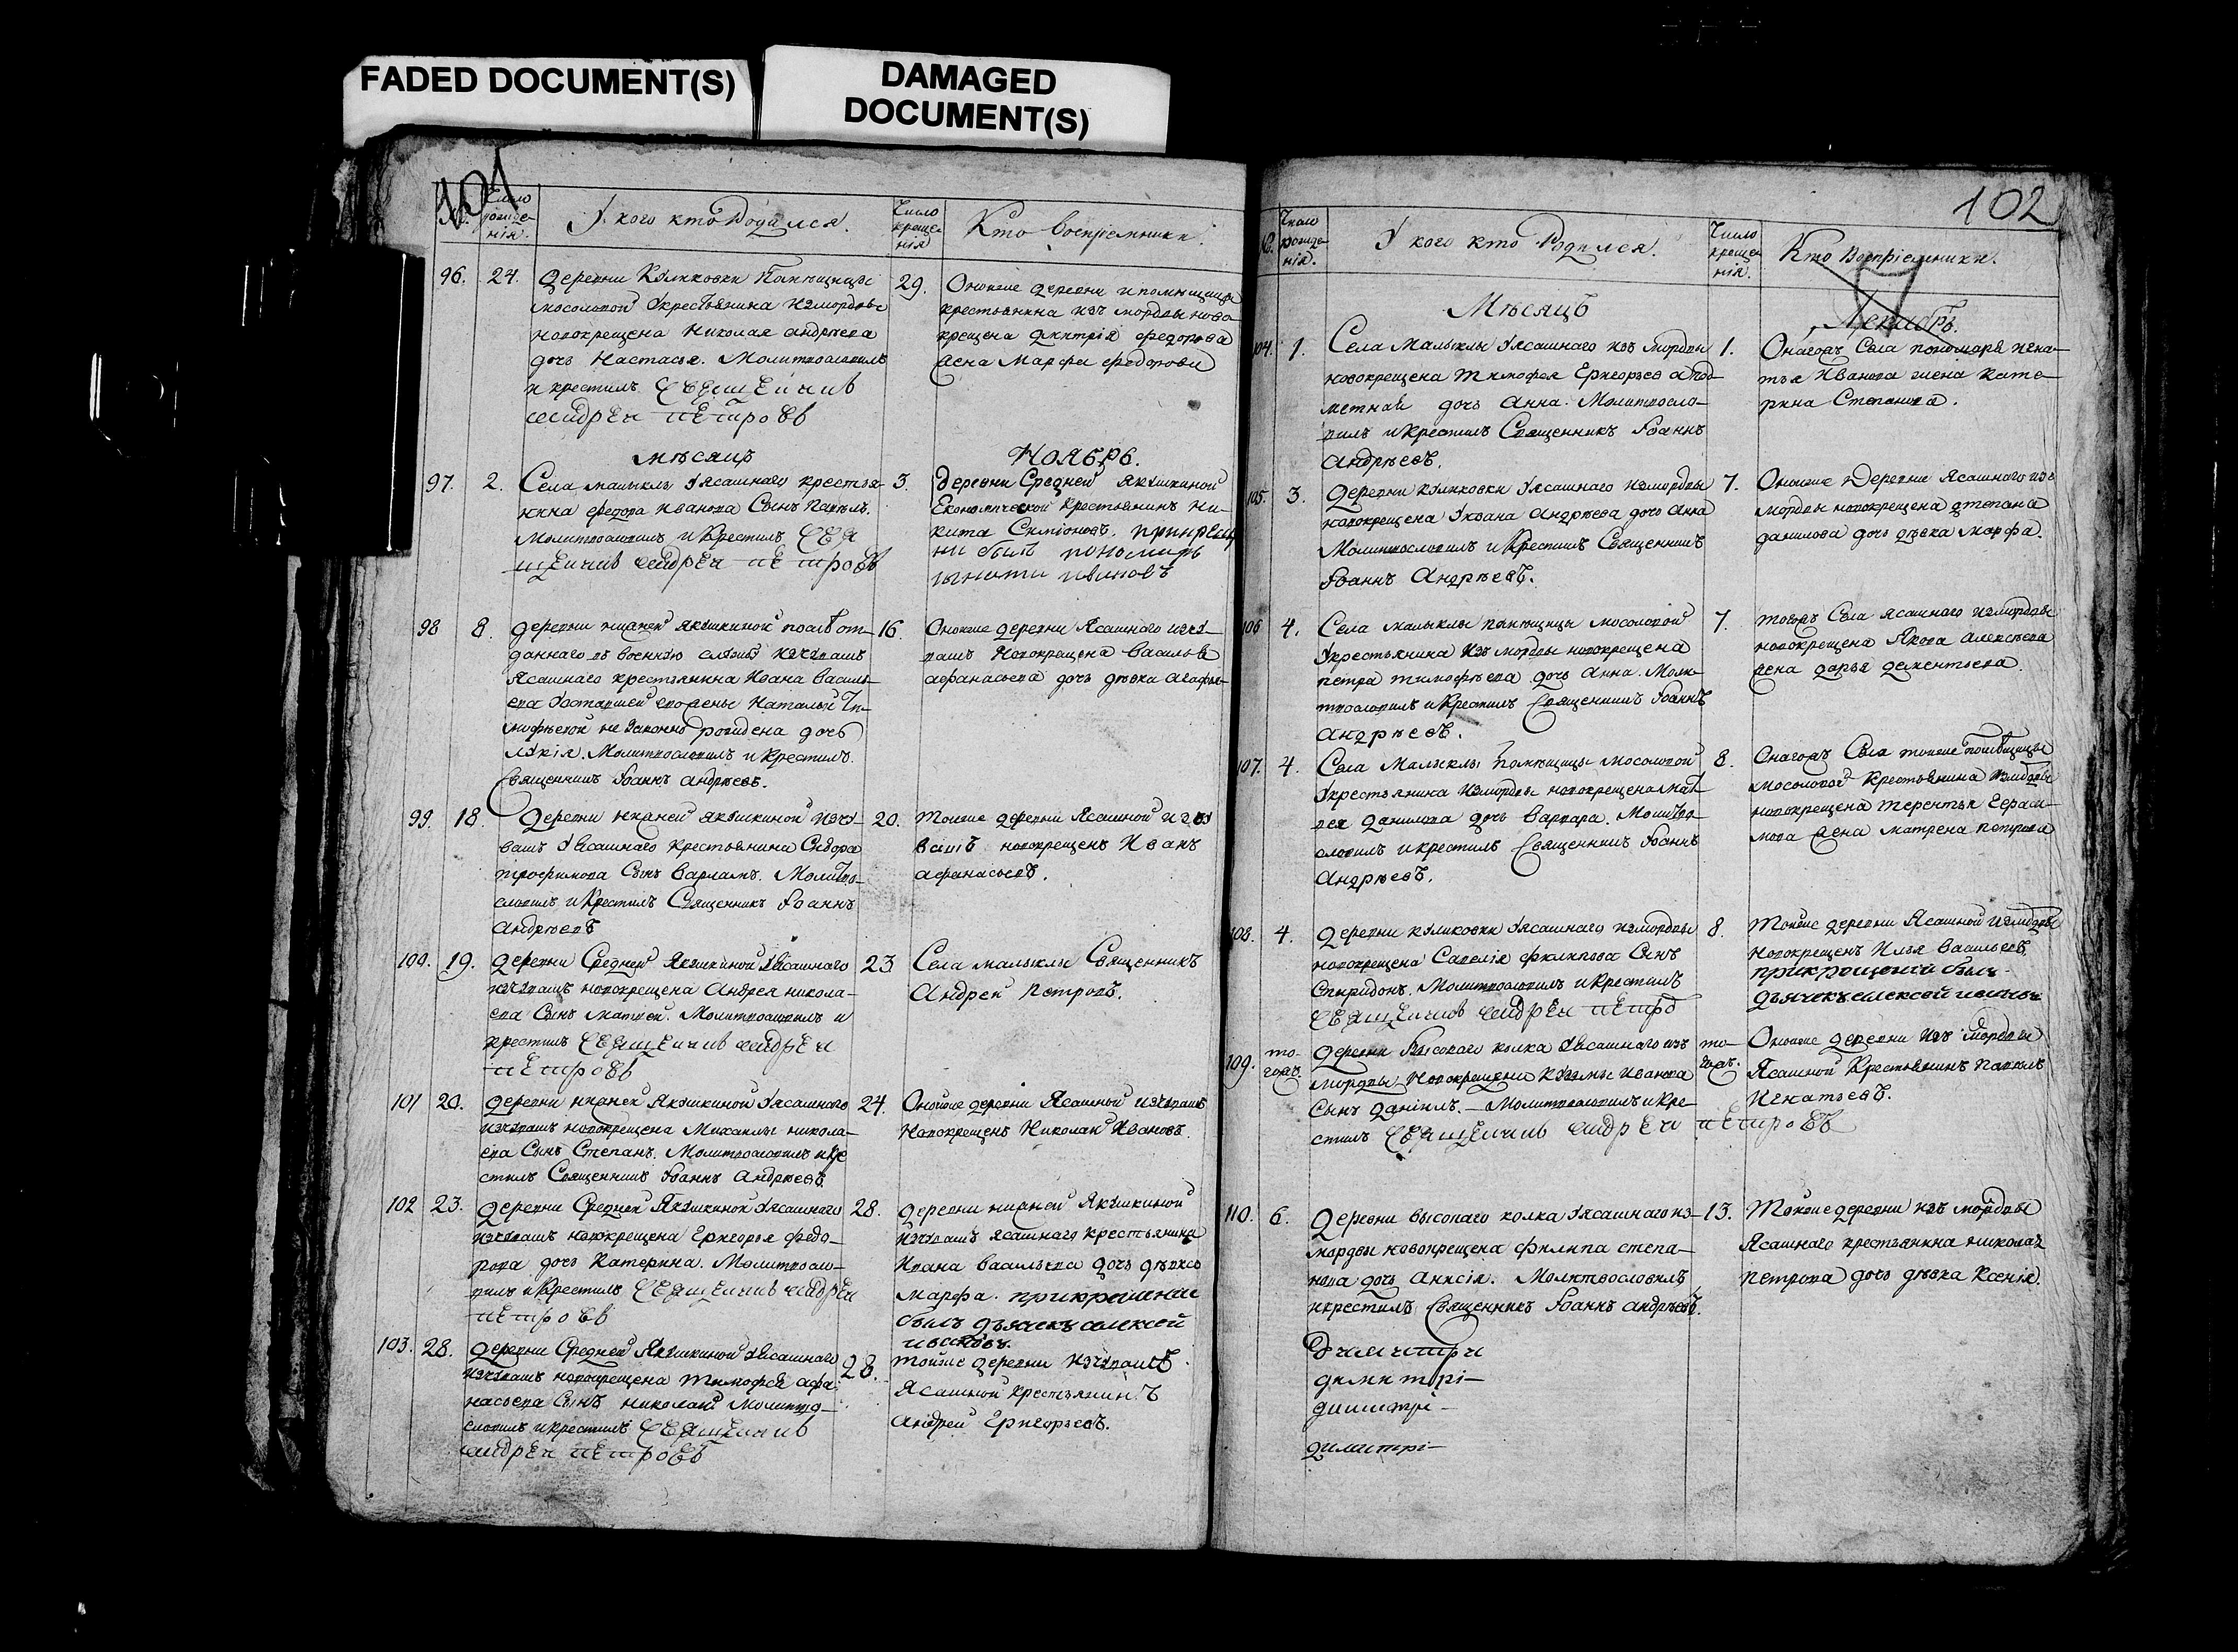 FADED DOCUMENT(S)
DAMAGED
DOCUMENT(S)
101
Число
рожде-
нія.
У кого кто родился.
Число
креще-
нія
Кто воспріемники.
96.
24.
деревни Куликовки помещицы
Мосоловой у крестьянина измордвы
новокрещена Николая андреева
дочь Настасья. Молитвословилъ
и крестилъ священникъ
андрей петровъ
29.
Оношке деревни и помещицы
крестьянина изъ мордвы ново-
крещена дмитрія федорова
жена Марфа федорова
месяцъ
Ноябрь.
97.
2.
Села малыклы у ясашнаго крестья-
нина федора иванова сынъ павелъ.
Молитвословилъ и крестилъ свя
щенникъ андрей петровъ
3.
деревни Средней якушкиной
Економической крестьянинъ Ни-
кита Симіоновъ. прикреще
ни былъ пономарь
игнатей ивановъ
98
8.
деревни нижней якушкиной послѣ от-
даннаго въ военную службу изчувашъ
ясашнаго крестьянина Ивана василь-
ева у оставшей его жены Натальи Ти-
мофѣевой не законно рождена дочь
Лукія. Молитвословилъ и крестилъ
священникъ Іоаннъ андрѣевъ.
16.
Оношке деревни Ясашнаго изчу-
вашъ новокрещена василья
афанасьева дочь дѣвка агафья-
99.
18.
деревни нижней якушкиной изчу-
вашъ у ясашнаго крестьянина Сидора
трофимова сынъ варламъ. Молитво-
словилъ и крестилъ Священникъ Іоаннъ
андрѣевъ
20.
тойже деревни Ясашной изчу
вашъ новокрещенъ Иванъ
афанасьевъ.
100.
19.
деревни Средней Якушкиной у ясашнаго
изчувашъ новокрещена Андрея никола-
ева сынъ матвей. Молитвословилъ и
крестилъ священникъ андрей
петровъ
23
Села малыклы Священникъ
Андрей петровъ.
101
20.
деревни нижней Якушкиной у ясашнаго
изчувашъ новокрещена Михаилы никола-
ева сынъ Степанъ. Молитвословилъ и кре
стилъ Священникъ Іоаннъ андрѣевъ.
24.
Оношке деревни Ясашной изчувашъ
новокрещенъ Николай Ивановъ.
102
23.
деревни Средней Якушкиной у ясашнаго
изчувашъ новокрещена Григорья федо-
рова дочь Катерина. Молитвосло-
вилъ и крестилъ священникъ андрей
петровъ
28.
деревни нижней Якушкиной
изчувашъ ясашнаго крестьянина
Ивана васильева дочь дѣвка
марфа. прикрещение
былъ дьячекъ алексей
ивановъ.
103.
28.
деревни Средней Якушкиной у ясашнаго
изчувашъ новокрещена тимофея афа-
насьева сынъ николай молитво-
словилъ и крестилъ священникъ
андрей петровъ
28.
тойже деревни изчувашъ
ясашной крестьянинъ
андрей Григорьевъ.
102
Число
рожде-
нія.
У кого кто родился.
Число
креще-
нія.
Кто воспріемники.
Мѣсяцъ
Декабрь.
104.
1.
Села Малыклы у ясашнаго изъ мордвы
новокрещена Тимофея Григорьева
дочь Анна. Молитвосло-
вилъ и крестилъ Священникъ Іоаннъ
андрѣевъ.
1.
Онагожъ Села пономаря игна-
тья Иванова жена кате-
рина Степанова.
105.
3.
деревни куликовки у ясашнаго измордвы
новокрещена у ивана андрѣева дочь анна
Молитвословилъ и крестилъ Священникъ
Іоаннъ Андрѣевъ.
7.
Оношке деревни Ясашнаго изъ
мордвы новокрещена степана
данилова дочь дѣвка марфа.
106
4.
Села малыклы помѣщицы мосоловой
у крестьянина изъ мордвы новокрещена
петра тимофѣева дочь анна. Моли-
твословилъ и крестилъ Священникъ Іоаннъ
андрѣевъ.
7.
тогожъ Села ясашнаго измордвы
новокрещена Якова алексѣева
жена дарья дементьева.
107.
4.
Села Малыклы помѣщицы мосоловой
у крестьянина измордвы новокрещена мат-
вея данилова дочь варвара. Молитво-
словилъ и крестилъ Священникъ Іоаннъ
Андрѣевъ.
8.
Онагожъ Села тойже помѣщицы
мосоловой крестьянина измордвы
новокрещена терентья Гераси-
мова жена матрена петрова
108.
4.
деревни куликовки у ясашнаго измордвы
новокрещена Савелія филипова сынъ
Спиридонъ. Молитвословилъ и крестилъ
священникъ андрей петро
8.
тойже деревни Ясашной измордвы
новокрещенъ Илья васильевъ.
прикрещеніи былъ
дьячекъ алексей ивановъ
109.
то-
гожъ
деревни Высокаго колка у ясашнаго изъ
мордвы новокрещена кузмы иванова
сынъ даніилъ. — Молитвословилъ и кре-
стилъ священникъ андрей петровъ
то-
гожъ.
Оношке деревни изъ мордвы
Ясашной крестьянинъ павелъ
игнатьевъ.
110.
6.
деревни высокаго колка у ясашнаго из-
мордвы новокрещена филипа степа-
нова дочь анисія. Молитвословилъ
и крестилъ Священникъ Іоаннъ андрѣевъ.
13.
Тойже деревни изъ мордвы
Ясашнаго крестьянина николая
петрова дочь дѣвка Ксенія.
димитри
димитрі-
димитрі-
димитрі-